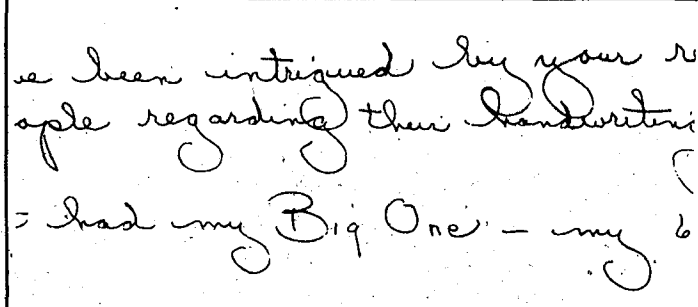 ve been intrigued by your r
ople regarding their handwriting
had my Big One - my b